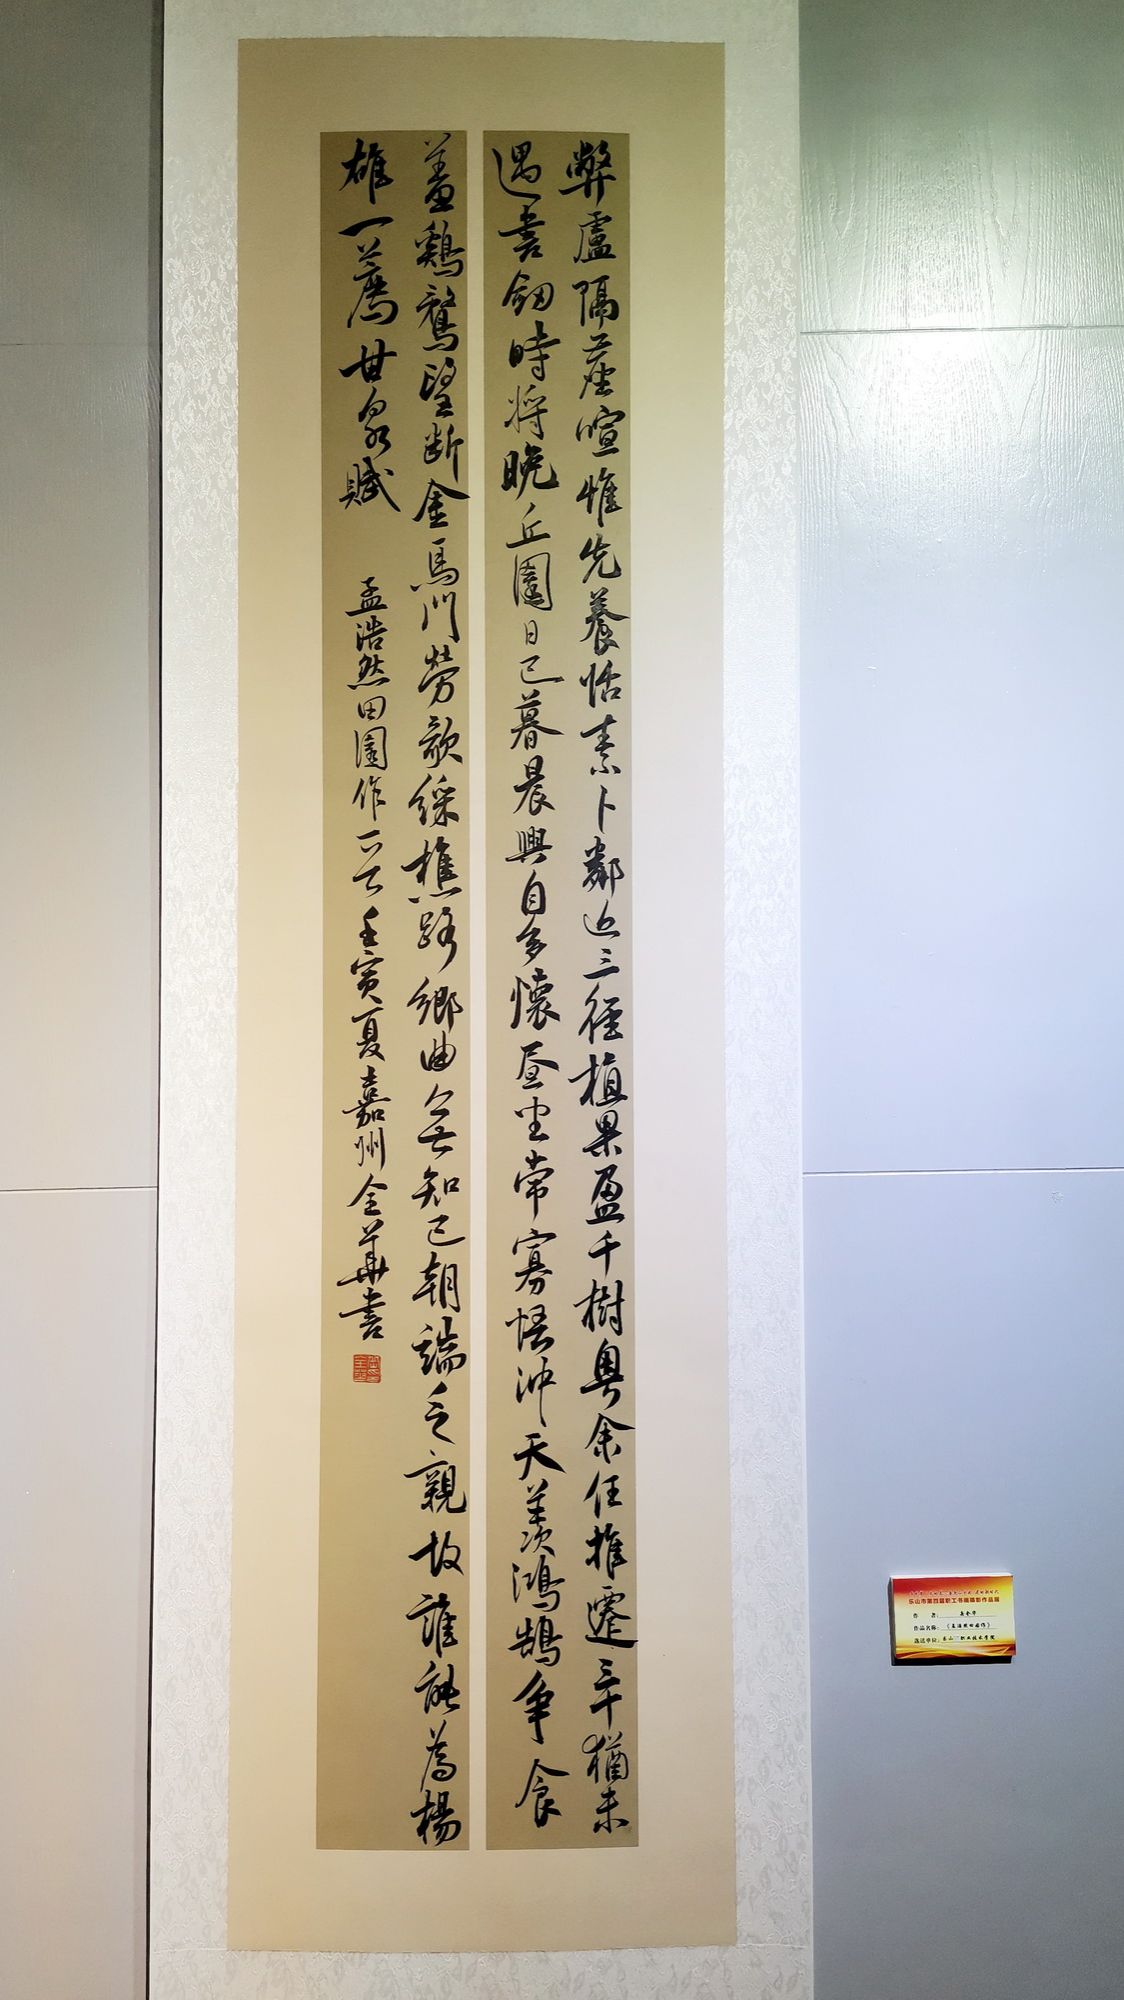 弊廬隔塵喧惟先養恬素卜鄰近三徑植果盈千樹粵余任推遷三十猶未
遇書劒時將晚丘園日已暮晨興自多懷晝坐常寡悟沖天羨鴻鵠爭食
羞鷄鶩望斷金馬門勞歌綵樵路鄉曲無知己朝端乏親故誰能為楊
雄一薦甘泉賦
孟浩然田園作一首壬寅夏嘉州全華書
乐山市第四届职工书画摄影作品展
作 者：全华
作品名称：《孟浩然田园作》
选送单位：乐山职业技术学院